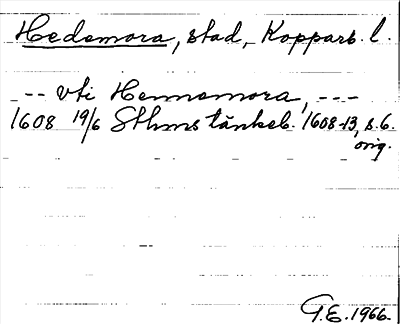 Hedemora, stad, Kopparb. l.
-- vti Hennemora, ---
1608 19/6 Sthms tänkeb. 1608-13, s. 6.
orig.
G.E. 1966.